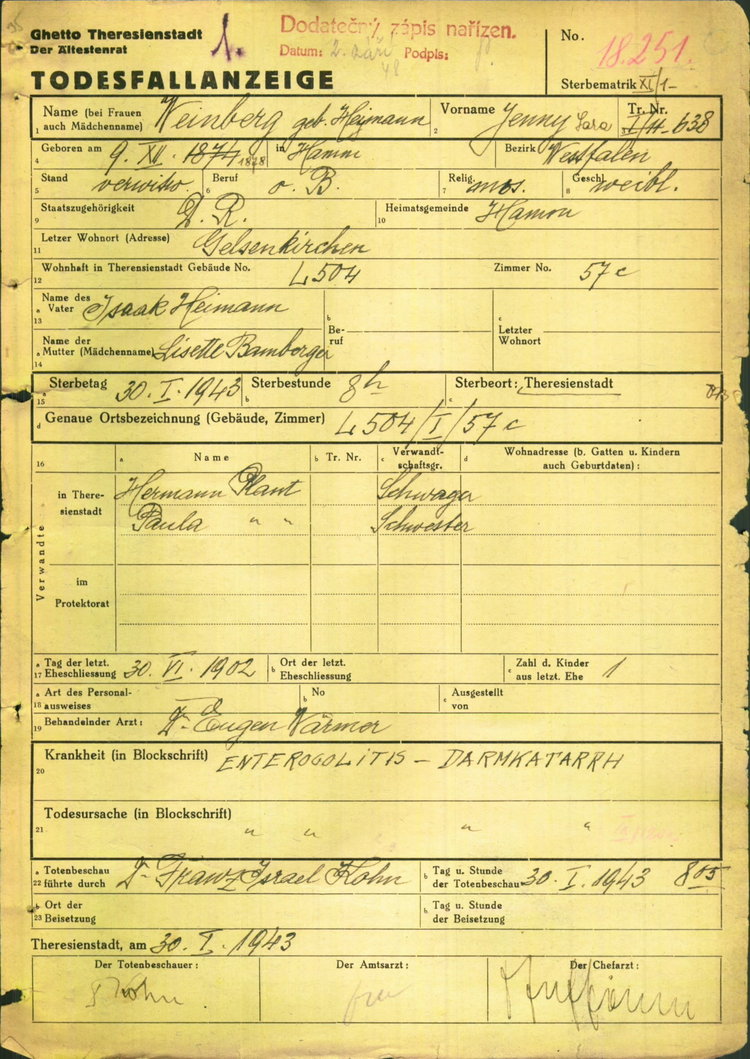 Ghetto Theresienstadt
Der Ältestenrat
1.
Dodatečný zápis nařízen.
Datum: 2. září 48 Podpis:
No.
18.251.
TODESFALLANZEIGE
Sterbematrik XI/1-
1 Name (bei Frauen auch Mädchenname) Weinberg geb. Heymann 2 Vorname Jenny Sara 3 Tr. Nr. 638
4 Geboren am 9. XII. 1874 1878 in Hamm Bezirk Westfalen
5 Stand verwitw. 6 Beruf o. B. 7 Relig. mos. 8 Geschl. weibl.
9 Staatszugehörigkeit D. R. 10 Heimatsgemeinde Hamm
11 Letzer Wohnort (Adresse) Gelsenkirchen
12 Wohnhaft in Therensienstadt Gebäude No. L 504 Zimmer No. 57 c
13 a Name des Vater Isaak Heimann
b Beruf c Letzter Wohnort
14 a Name der Mutter (Mädchenname) Lisette Bamberger
15 a Sterbetag 30. I. 1943 b Sterbestunde 8 h c Sterbeort: Theresienstadt
d Genaue Ortsbezeichnung (Gebäude, Zimmer) L 504/I/57 c
16 a Name b Tr. Nr. c Verwandtschaftsgr. d Wohnadresse (b. Gatten u. Kindern auch Geburtdaten):
Verwandte
in Theresienstadt
Hermann Plaut Schwager
Paula " " Schwester
im Protektorat
17 a Tag der letzt. Eheschliessung 30. VI. 1902 b Ort der letzt. Eheschliessung c Zahl d. Kinder aus letzt. Ehe 1
18 a Art des Personalausweises b No c Ausgestellt von
19 Behandelnder Arzt: Dr. Eugen Wärmer
20 Krankheit (in Blockschrift) ENTEROCOLITIS – DARMKATARRH
21 Todesursache (in Blockschrift) " " " "
22 a Totenbeschau führte durch Dr. Franz Israel Kohn b Tag u. Stunde der Totenbeschau 30. I. 1943 8 05
23 a Ort der Beisetzung b Tag u. Stunde der Beisetzung
Theresienstadt, am 30. I. 1943
Der Totenbeschauer: Der Amtsarzt: Der Chefarzt:
F Kohn